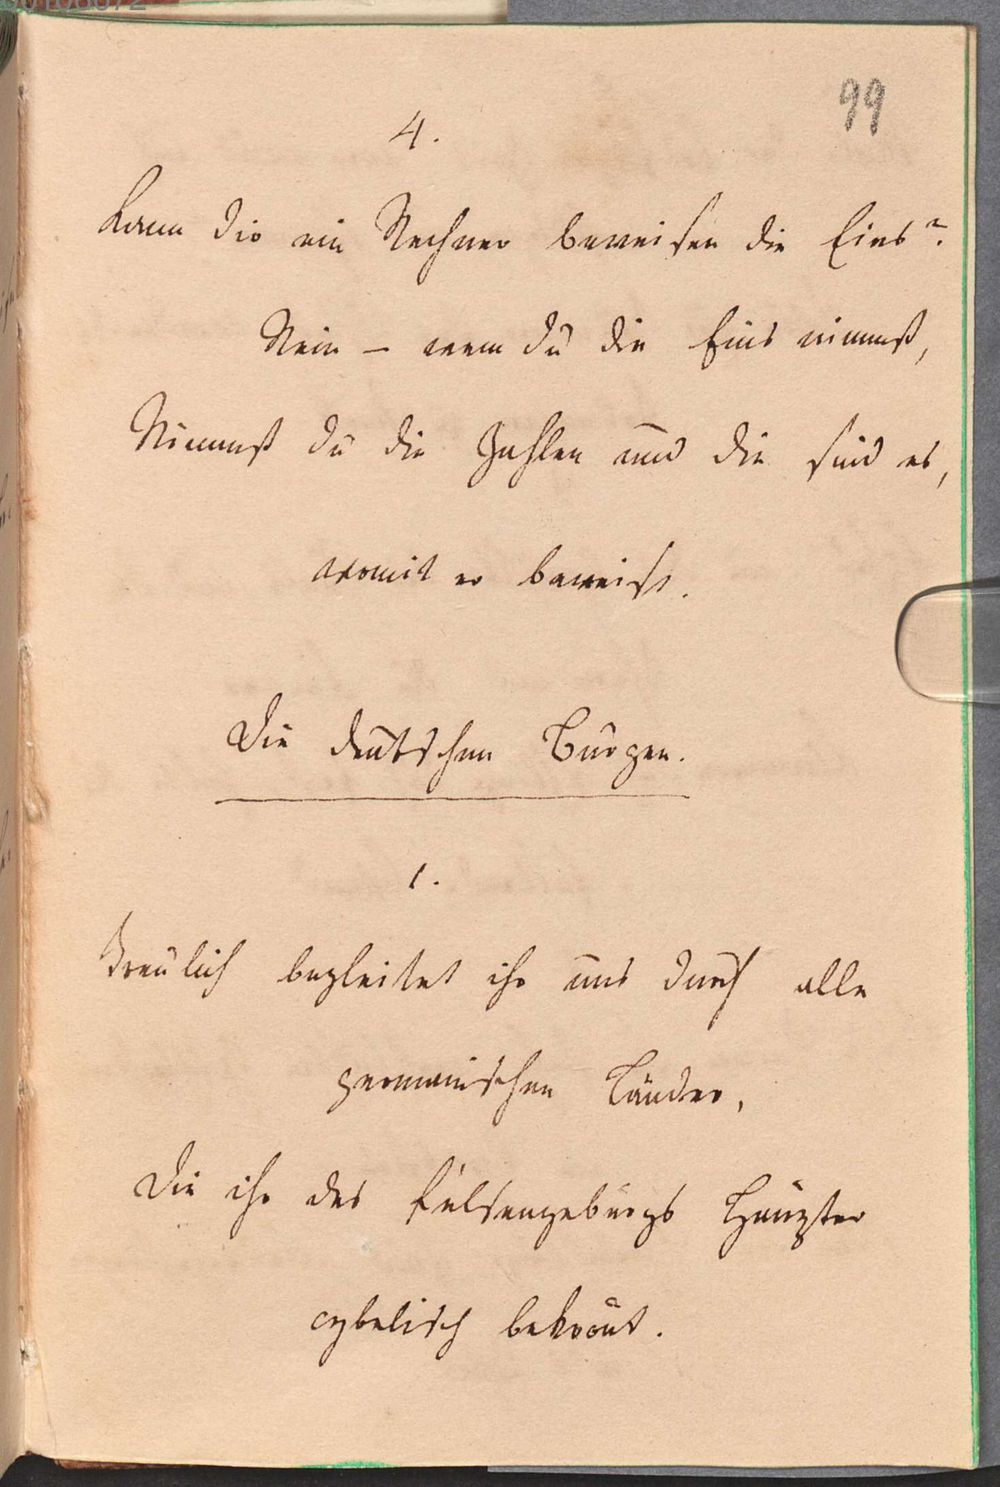 99
4.
Kann dir ein Rechner beweisen die Eins?
Nein – wenn du die Eins nimmst,
Nimmst du die Zahlen und die sind es,
womit er beweist.
Die deutschen Burgen.
1.
Treulich begleitet ihr uns durch alle
germanischen Länder,
Die ihr des Felsengebürgs Häupter
cybelisch bekrönt.